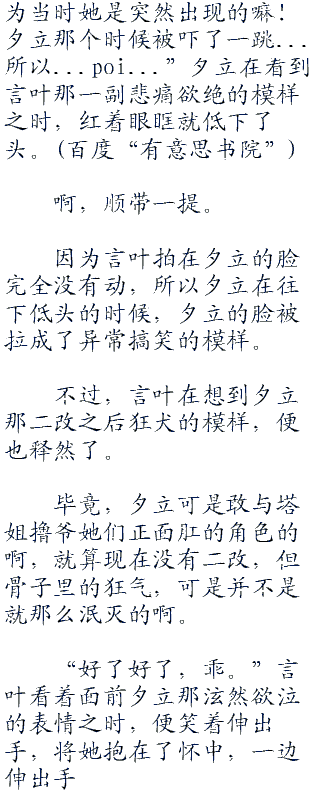 为当时她是突然出现的嘛！
夕立那个时候被吓了一跳...
所以...poi...”夕立在看到
言叶那一副悲痛欲绝的模样
之时，红着眼眶就低下了
头。(百度“有意思书院”)
啊，顺带一提。
因为言叶拍在夕立的脸
完全没有动，所以夕立在往
下低头的时候，夕立的脸被
拉成了异常搞笑的模样。
不过，言叶在想到夕立
那二改之后狂犬的模样，便
也释然了。
毕竟，夕立可是敢与塔
姐撸爷她们正面肛的角色的
啊，就算现在没有二改，但
骨子里的狂气，可是并不是
就那么泯灭的啊。
“好了好了，乖。”言
叶看着面前夕立那泫然欲泣
的表情之时，便笑着伸出
手，将她抱在了怀中，一边
伸出手